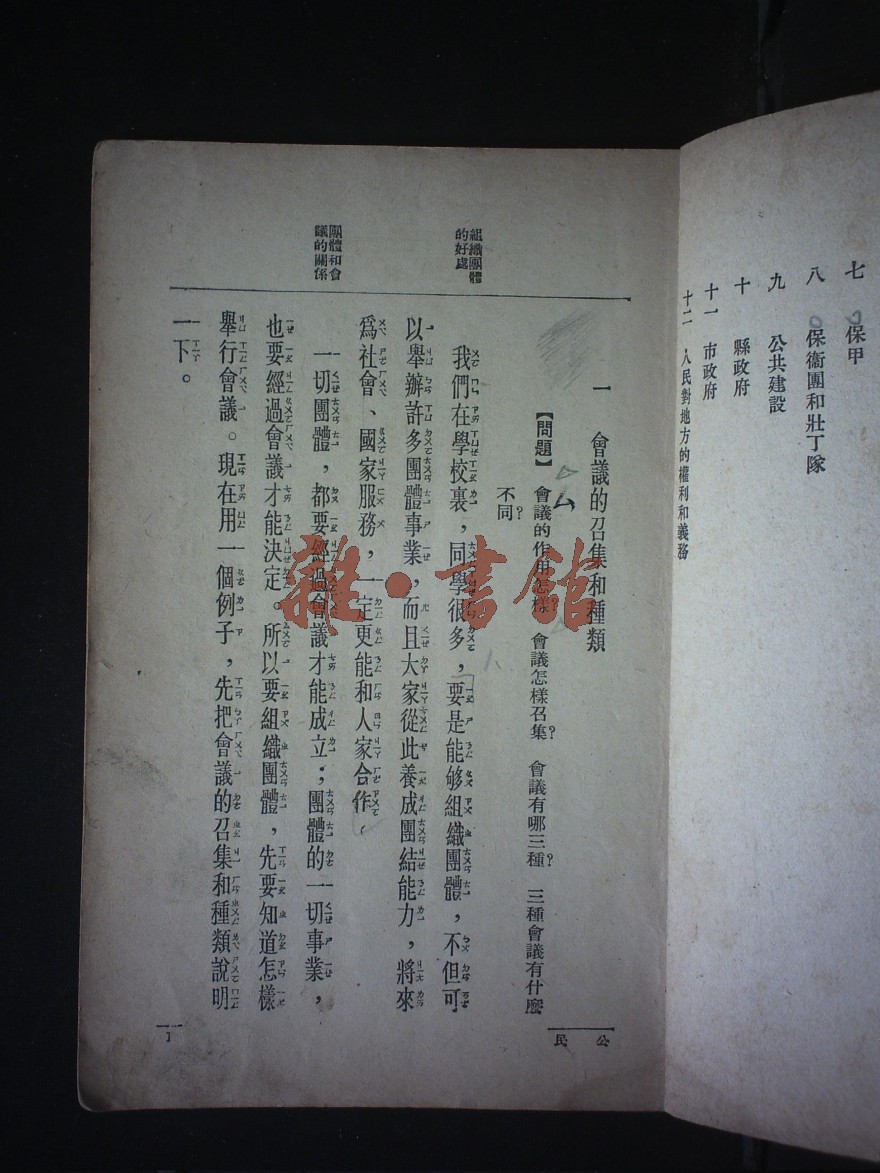 七 保甲
八 保衞團和壯丁隊
九 公共建設
十 縣政府
十一 市政府
十二 人民對地方的權利和義務
公民
一 會議的召集和種類
【問題】 會議的作用怎樣？ 會議怎樣召集？ 會議有哪三種？ 三種會議有什麼
不同？
組織團體
的好處
我們在學校裏，同學很多，要是能够組織團體，不但可
以舉辦許多團體事業，而且大家從此養成團結能力，將來
爲社會、國家服務，一定更能和人家合作。
團體和會
議的關係
一切團體，都要經過會議才能成立；團體的一切事業，
也要經過會議才能決定。所以要組織團體，先要知道怎樣
舉行會議。現在用一個例子，先把會議的召集和種類說明
一下。
雜·書館